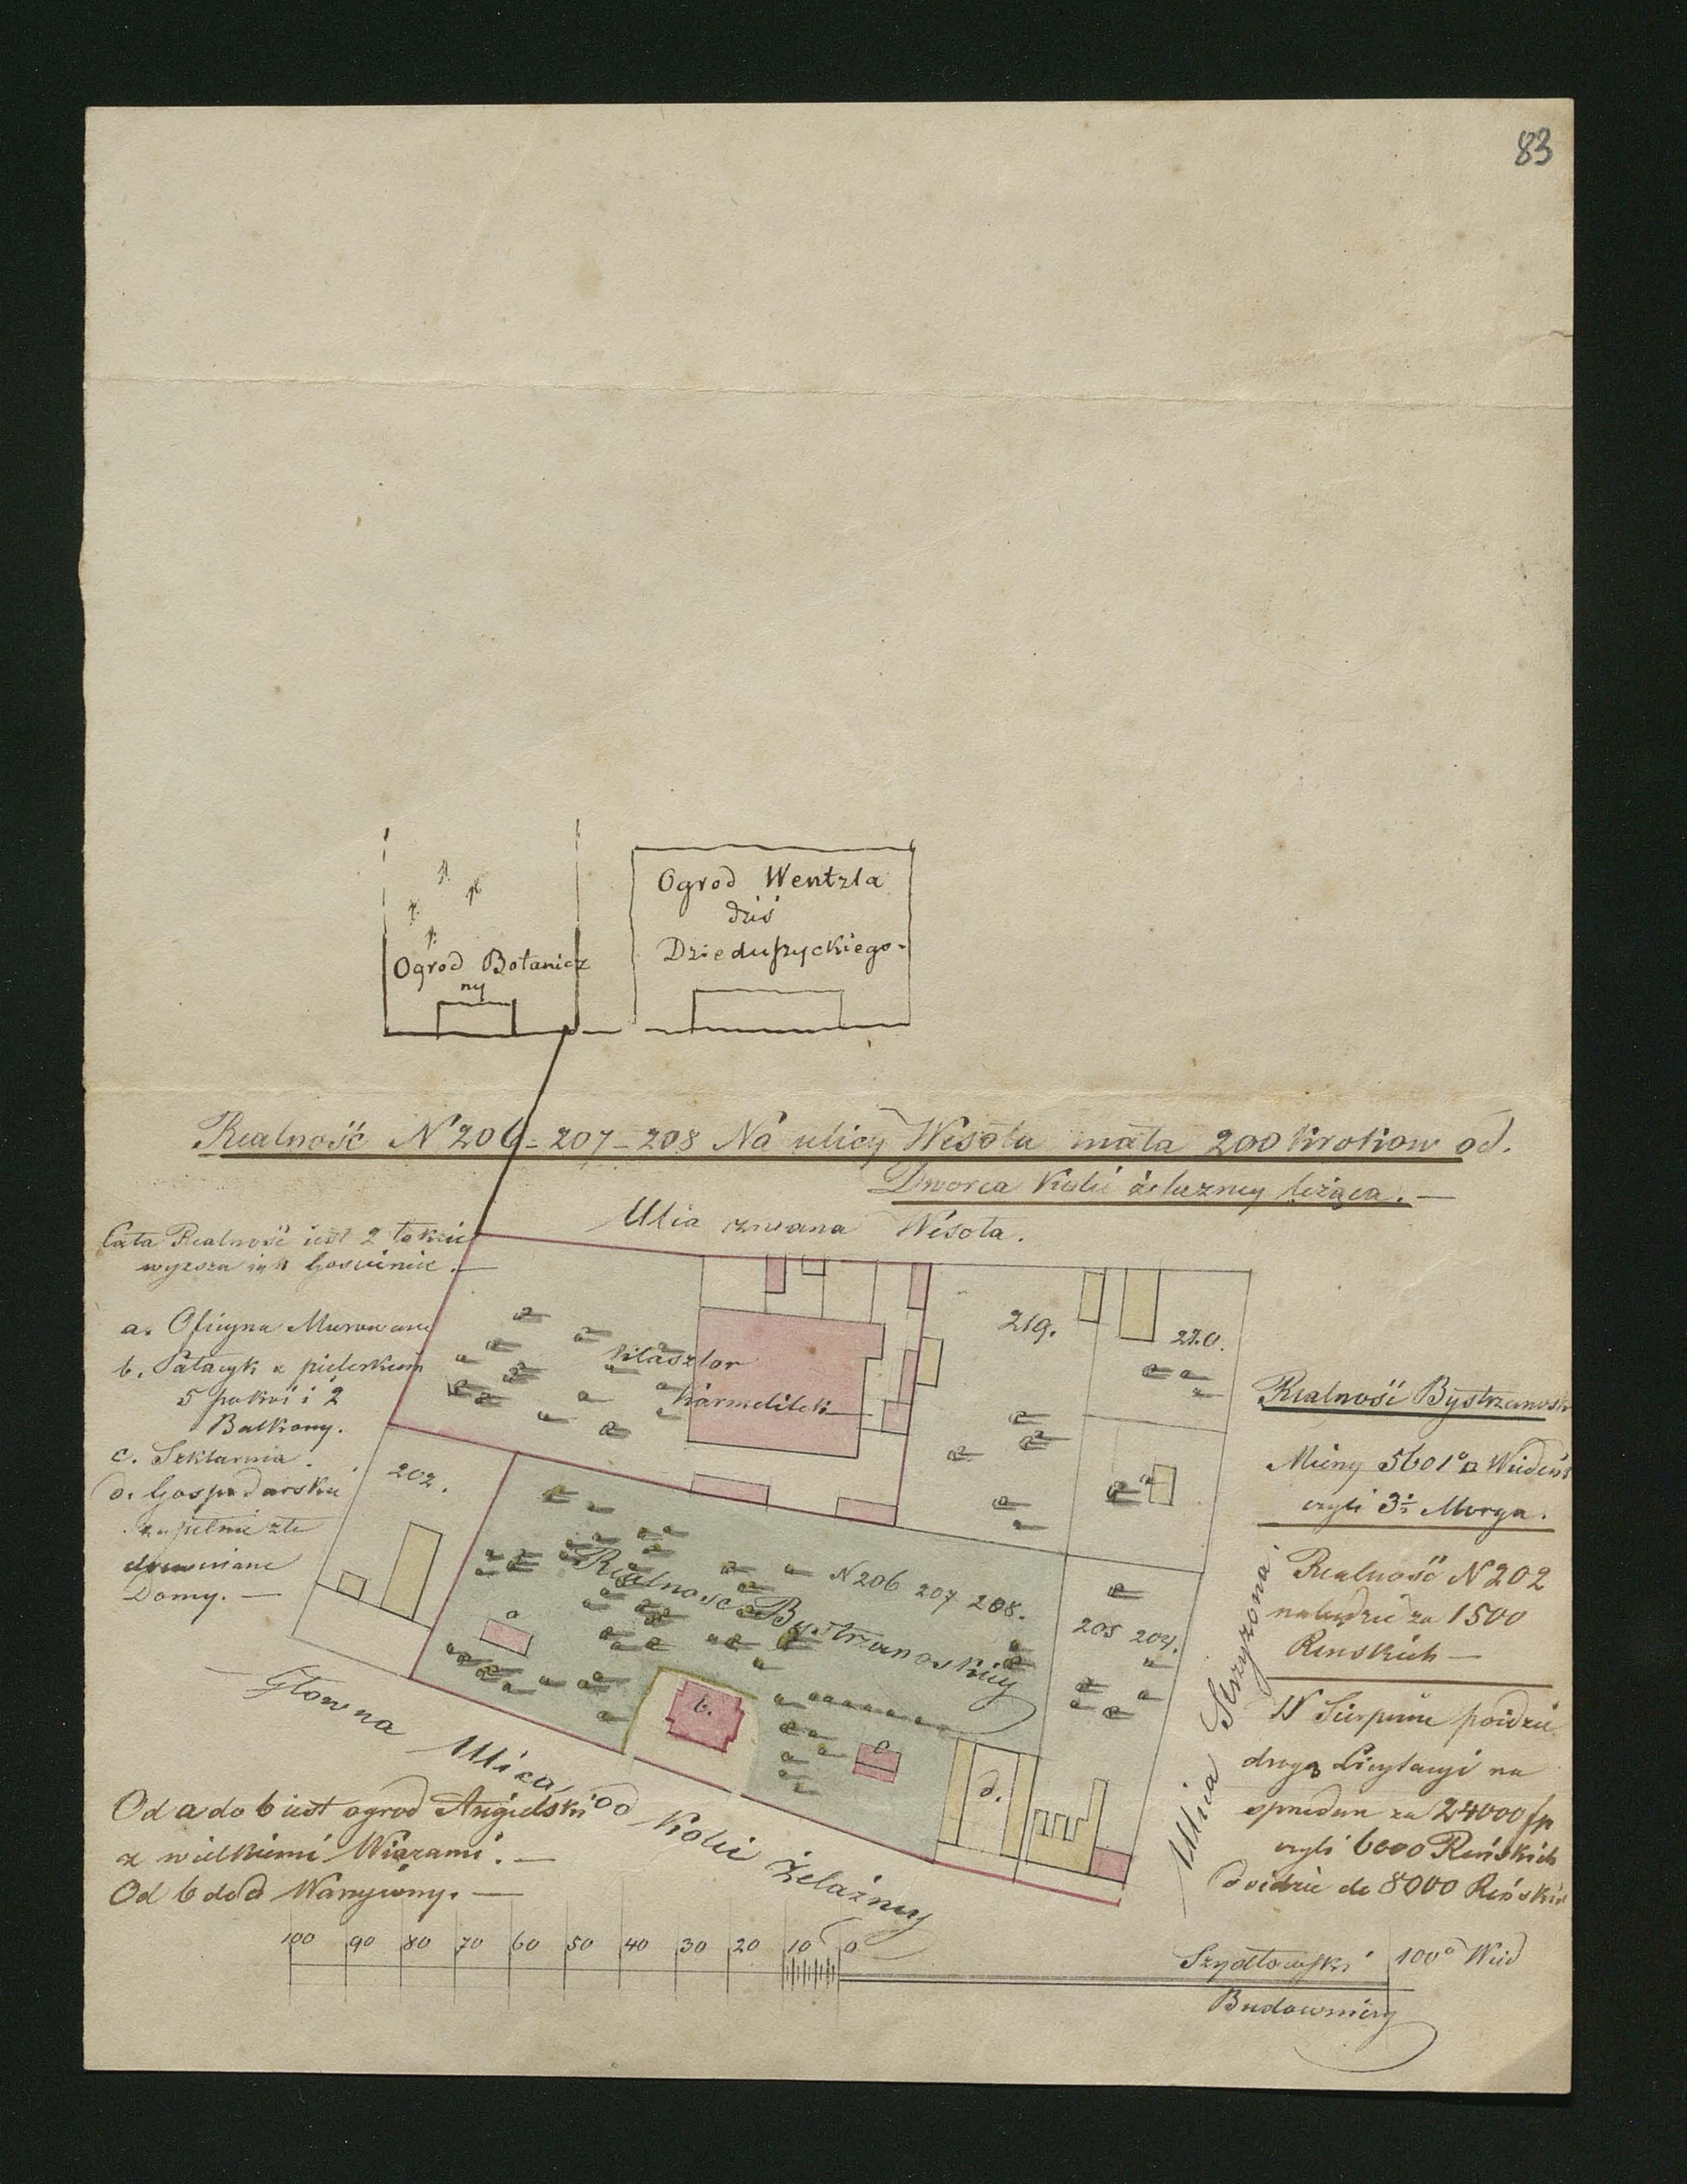 83
Ogrod Wentzla
dziś
Dzieduszyckiego.
Ogrod Botanicz
ny
Realność N 206 - 207 - 208 Na ulicy Wesoła mała 200 krokow od.
Dworca Kolei żelazney leżąca. —
Ulia zwana Wesoła.
Cała Realność iest 2 łokcie
wyzsza iak Gosciniec. —
a. Oficyna Murowana
b. Pałacyk z pieterkiem
5 pokoi i 2
Balkony.
c. Szklarnia.
d. Gospodarskie
zupełnie złe
drewniane
Domy. —
Klasztor
Karmelitek
219.
220.
202.
Realnosc Bystrzanoskiey
N 206 207 208.
205 204.
a
b.
c
d.
Głowna Ulica, od Kolei Żelazney
Ulica Strzyzona.
Realność Bystrzanosk
Mierzy 5601° □ Wiedeńs
czyli 3 Morga.
Realność N 202
za 1500
Renskich —
Sierpnia poidzie
droga Licytacyi na
sprzedarz za 24000 fp
czyli 6000 Reńskich
doidzie do 8000 Reńskich
Od a do b iest ogrod Angielski
z wielkiemi Wiązami. —
Od b do d Warzywny. —
100 90 80 70 60 50 40 30 20 10 0
Szydłowski 100° Wied
Budowniczy